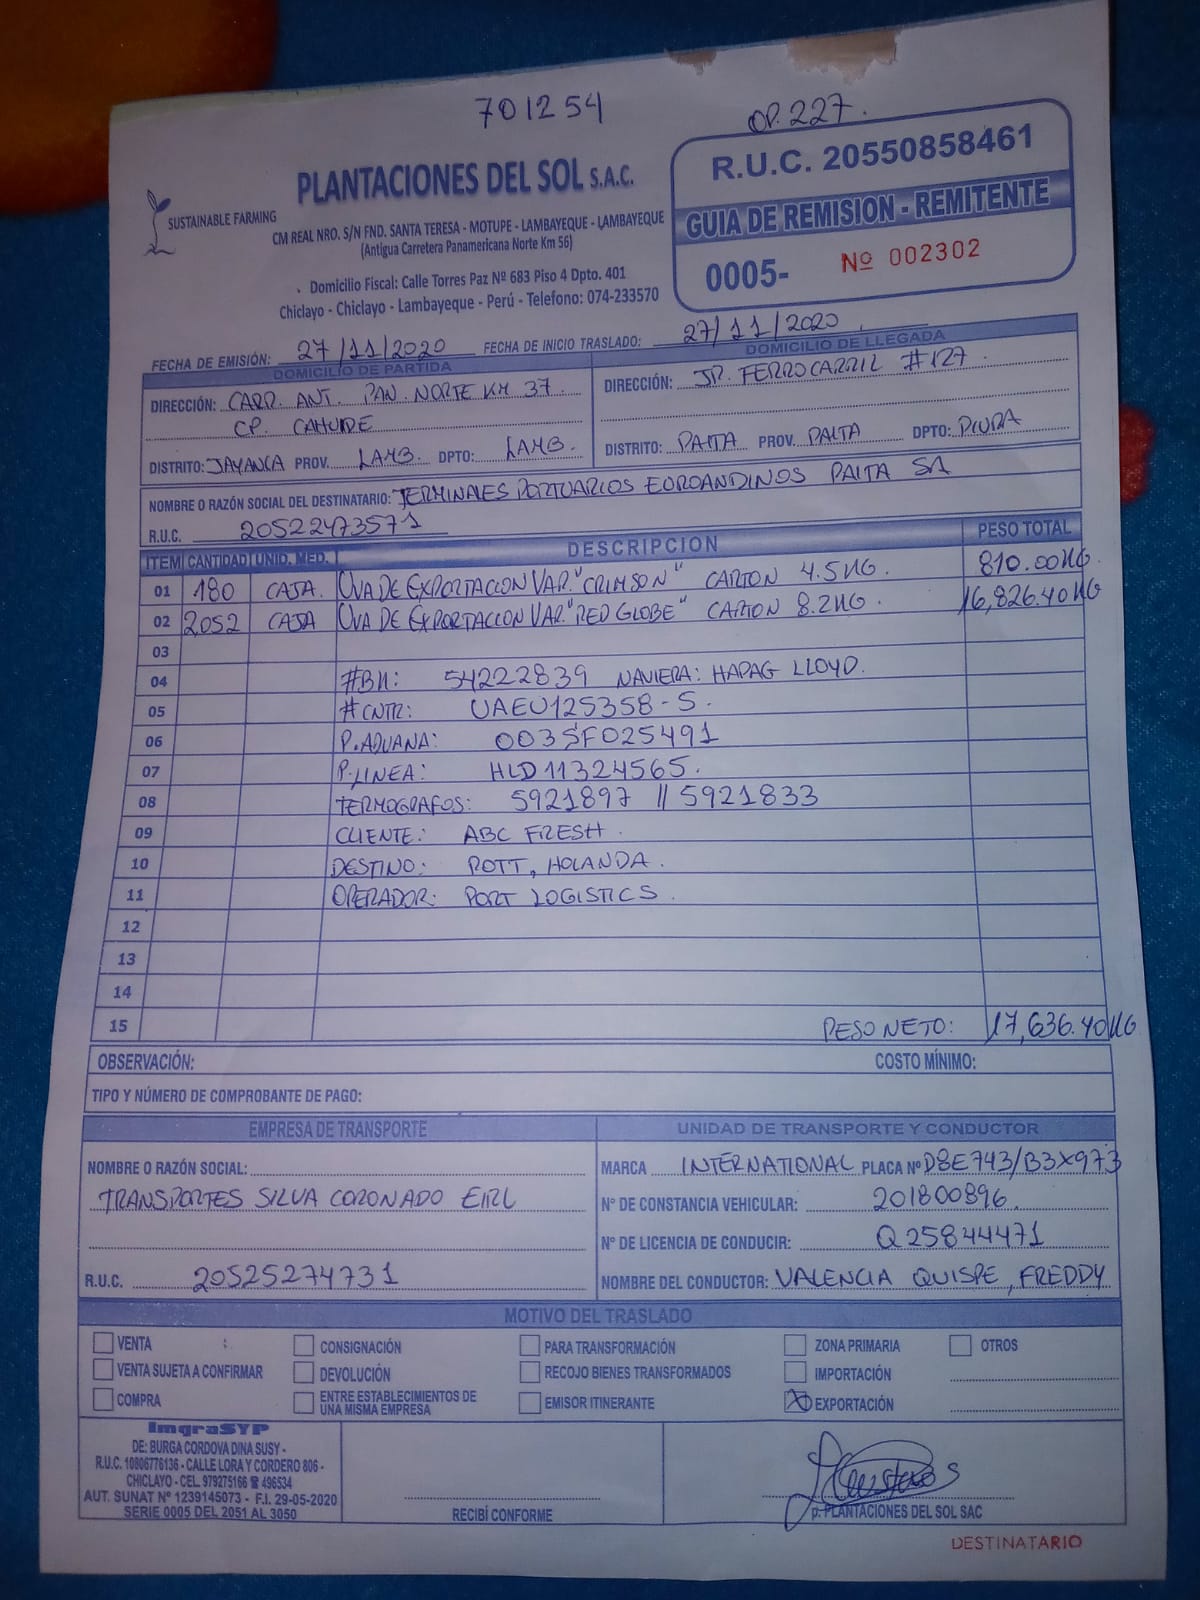 701254
OP. 227.
PLANTACIONES DEL SOL S.A.C.
SUSTAINABLE FARMING
CM REAL NRO. S/N FND. SANTA TERESA - MOTUPE - LAMBAYEQUE - LAMBAYEQUE
(Antigua Carretera Panamericana Norte Km 56)
Domicilio Fiscal: Calle Torres Paz Nº 683 Piso 4 Dpto. 401
Chiclayo - Chiclayo - Lambayeque - Perú - Telefono: 074-233570
R.U.C. 20550858461
GUIA DE REMISION - REMITENTE
0005- Nº 002302
FECHA DE EMISIÓN: 27/11/2020 FECHA DE INICIO TRASLADO: 27/11/2020
DOMICILIO DE PARTIDA
DIRECCIÓN: CARR. ANT. PAN. NORTE KM 37.
CP. CAHUIDE
DISTRITO: JAYANCA PROV. LAMB. DPTO: LAMB.
DOMICILIO DE LLEGADA
DIRECCIÓN: JR. FERROCARRIL #127.
DISTRITO: PAITA PROV. PAITA DPTO: PIURA
NOMBRE O RAZÓN SOCIAL DEL DESTINATARIO: TERMINALES PORTUARIOS EUROANDINOS PAITA SA
R.U.C. 20522473571
ITEM CANTIDAD UNID. MED. DESCRIPCION PESO TOTAL
01 180 CAJA. UVA DE EXPORTACION VAR. "CRIMSON" CARTON 4.5KG. 810.00KG.
02 2052 CAJA UVA DE EXPORTACCION VAR. "RED GLOBE" CARTON 8.2KG. 16,826.40KG
03
04 #BK: 54222839 NAVIERA: HAPAG LLOYD.
05 #CNTR: UAEU125358-5.
06 P.ADUANA: 003SF025491
07 P.LINEA: HLD11324565.
08 TERMOGRAFOS: 5921897 // 5921833
09 CLIENTE: ABC FRESH.
10 DESTINO: ROTT, HOLANDA.
11 OPERADOR: PORT LOGISTICS.
12
13
14
15 PESO NETO: 17,636.40KG
OBSERVACIÓN: COSTO MÍNIMO:
TIPO Y NÚMERO DE COMPROBANTE DE PAGO:
EMPRESA DE TRANSPORTE
NOMBRE O RAZÓN SOCIAL:
TRANSPORTES SILVA CORONADO EIRL
R.U.C. 20525274731
UNIDAD DE TRANSPORTE Y CONDUCTOR
MARCA INTERNATIONAL PLACA Nº D8E743/B3X973
N° DE CONSTANCIA VEHICULAR: 201800896.
N° DE LICENCIA DE CONDUCIR: Q25844471
NOMBRE DEL CONDUCTOR: VALENCIA QUISPE, FREDDY
MOTIVO DEL TRASLADO
VENTA CONSIGNACIÓN PARA TRANSFORMACIÓN ZONA PRIMARIA OTROS
VENTA SUJETA A CONFIRMAR DEVOLUCIÓN RECOJO BIENES TRANSFORMADOS IMPORTACIÓN
COMPRA ENTRE ESTABLECIMIENTOS DE UNA MISMA EMPRESA EMISOR ITINERANTE X EXPORTACIÓN
ImgraSYP
DE: BURGA CORDOVA DINA SUSY -
R.U.C. 10806776136 - CALLE LORA Y CORDERO 806 -
CHICLAYO - CEL. 979275166 ☎ 496534
AUT. SUNAT Nº 1239145073 - F.I. 29-05-2020
SERIE 0005 DEL 2051 AL 3050
RECIBÍ CONFORME
p. PLANTACIONES DEL SOL SAC
DESTINATARIO